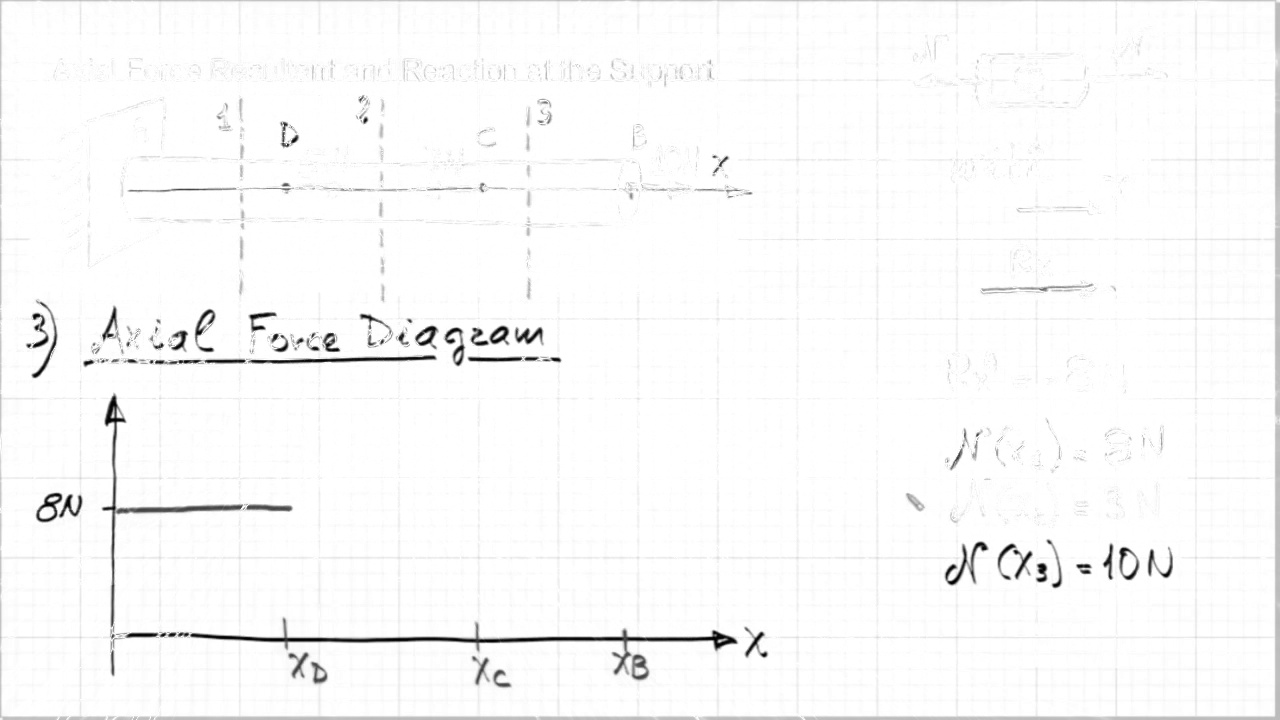 Axial Force Resultant and Reaction at the Support
1 2 3
D C B
5N 7N 10N X
3) Axial Force Diagram
8N
X_D X_C X_B X
N N
Rx = -8N
N(x₁) = 8N
N(x₂) = 3N
N(x₃) = 10N